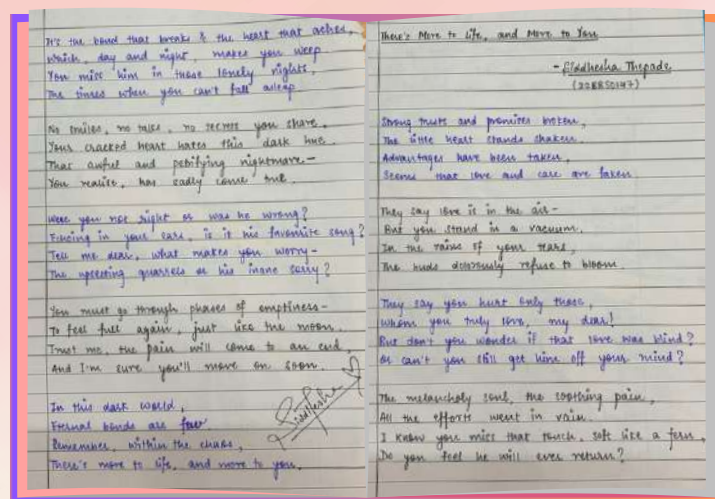 It's the bond that breaks & the heart that aches,
Which, day and night, makes you weep.
You miss him in those lonely nights,
The times when you can't fall asleep.
No smiles, no talks, no secrets you share.
Your cracked heart hates this dark hue.
That awful and petrifying nightmare-
You realize, has sadly come true.
Were you not right or was he wrong?
Echoing in your ears, is it his favourite song?
Tell me dear, what makes you worry-
The upsetting quarrels or his inane sorry?
You must go through phases of emptiness-
To feel full again, just like the moon.
Trust me, the pain will come to an end,
And I'm sure you'll move on soon.
In this dark world,
Eternal bonds are few
Remember, within the chaos,
There's more to life, and more to you.
Siddhesha
There's More to Life, and More to You
- Siddhesha Thepade
Strong trusts and promises broken,
The little heart stands shaken.
Advantages have been taken,
Seems that love and care are faken.
They say love is in the air-
But you stand in a vacuum.
In the rains of your tears,
The buds dolorously refuse to bloom.
They say you hurt only those,
Whom you truly love, my dear!
But don't you wonder if that love was blind?
Or can't you still get him off your mind?
The melancholy soul, the soothing pain,
All the efforts went in vain.
I know you miss that touch, soft like a fern,
Do you feel he will ever return?